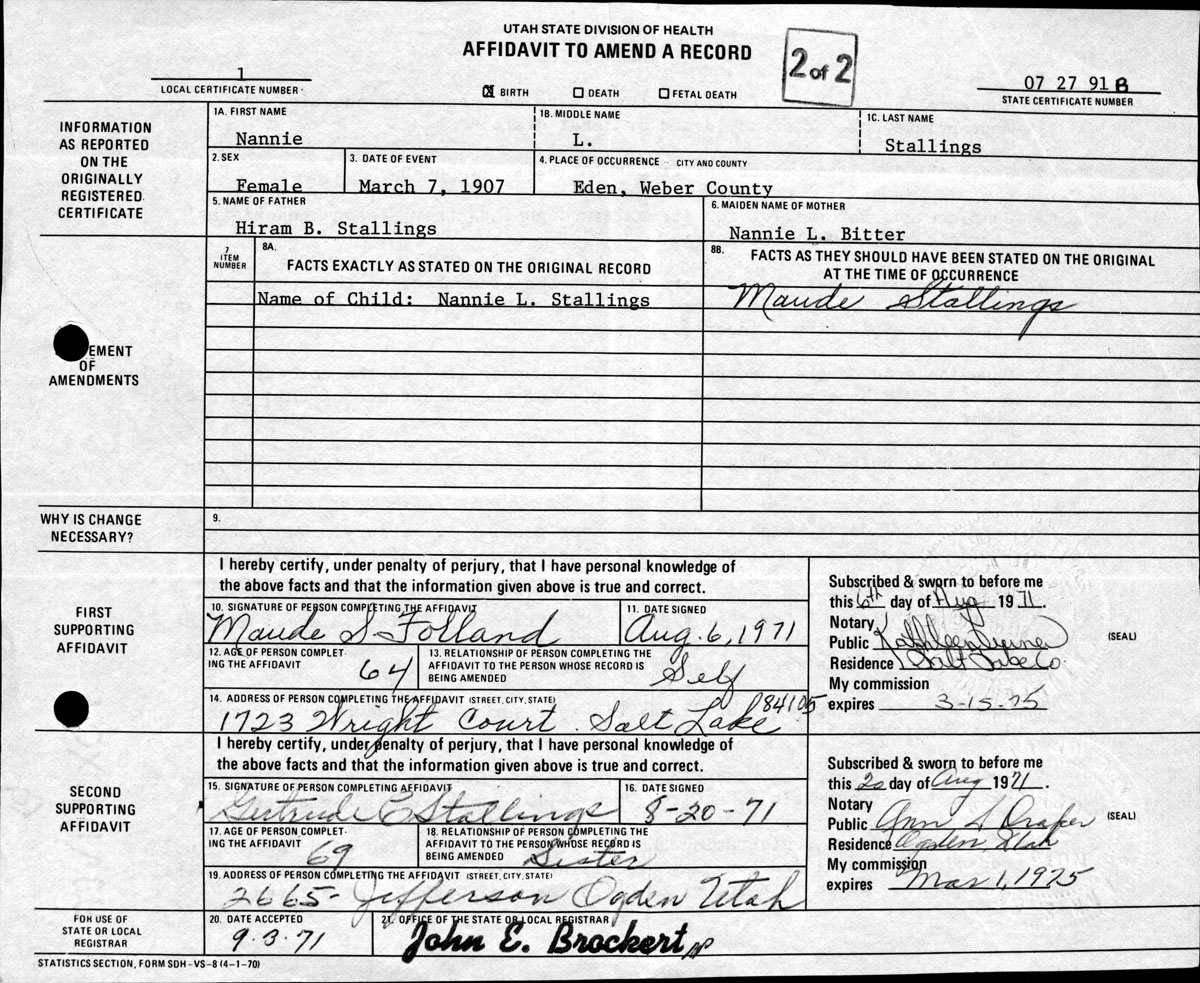 UTAH STATE DIVISION OF HEALTH
AFFIDAVIT TO AMEND A RECORD
2 of 2
1
LOCAL CERTIFICATE NUMBER
☒ BIRTH ☐ DEATH ☐ FETAL DEATH
07 27 91 B
STATE CERTIFICATE NUMBER
INFORMATION
AS REPORTED
ON THE
ORIGINALLY
REGISTERED
CERTIFICATE
1A. FIRST NAME
Nannie
1B. MIDDLE NAME
L.
1C. LAST NAME
Stallings
2. SEX
Female
3. DATE OF EVENT
March 7, 1907
4. PLACE OF OCCURRENCE - CITY AND COUNTY
Eden, Weber County
5. NAME OF FATHER
Hiram B. Stallings
6. MAIDEN NAME OF MOTHER
Nannie L. Bitter
EMENT
OF
AMENDMENTS
7
ITEM
NUMBER
8A.
FACTS EXACTLY AS STATED ON THE ORIGINAL RECORD
8B.
FACTS AS THEY SHOULD HAVE BEEN STATED ON THE ORIGINAL
AT THE TIME OF OCCURRENCE
Name of Child: Nannie L. Stallings
Maude Stallings
WHY IS CHANGE
NECESSARY?
9.
FIRST
SUPPORTING
AFFIDAVIT
I hereby certify, under penalty of perjury, that I have personal knowledge of
the above facts and that the information given above is true and correct.
10. SIGNATURE OF PERSON COMPLETING THE AFFIDAVIT
Maude S Folland
11. DATE SIGNED
Aug. 6, 1971
12. AGE OF PERSON COMPLET-
ING THE AFFIDAVIT
64
13. RELATIONSHIP OF PERSON COMPLETING THE
AFFIDAVIT TO THE PERSON WHOSE RECORD IS
BEING AMENDED
Self
14. ADDRESS OF PERSON COMPLETING THE AFFIDAVIT (STREET, CITY, STATE)
1723 Wright Court. Salt Lake 84105
Subscribed & sworn to before me
this 6th day of Aug 1971.
Notary
Public Kathleen
Residence Salt Lake Co.
My commission
expires 3-15-75
(SEAL)
SECOND
SUPPORTING
AFFIDAVIT
I hereby certify, under penalty of perjury, that I have personal knowledge of
the above facts and that the information given above is true and correct.
15. SIGNATURE OF PERSON COMPLETING AFFIDAVIT
Gertrude C Stallings
16. DATE SIGNED
8-20-71
17. AGE OF PERSON COMPLET-
ING THE AFFIDAVIT
69
18. RELATIONSHIP OF PERSON COMPLETING THE
AFFIDAVIT TO THE PERSON WHOSE RECORD IS
BEING AMENDED
Sister
19. ADDRESS OF PERSON COMPLETING THE AFFIDAVIT (STREET, CITY, STATE)
2665- Jefferson Ogden Utah
Subscribed & sworn to before me
this 20 day of Aug 1971.
Notary
Public Ann S Draper
Residence Ogden Utah
My commission
expires Mar 1, 1975
(SEAL)
FOR USE OF
STATE OR LOCAL
REGISTRAR
20. DATE ACCEPTED
9.3.71
21. OFFICE OF THE STATE OR LOCAL REGISTRAR
John E. Brockert
STATISTICS SECTION, FORM SDH-VS-8 (4-1-70)